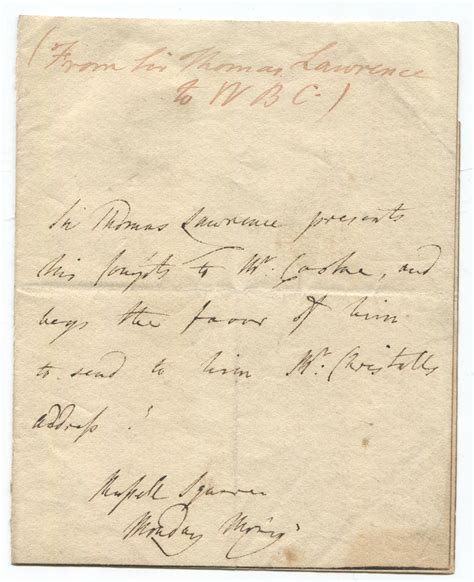 (From Sir Thomas Lawrence
to W B C)
Sir Thomas Lawrence presents
his Compts to Mr. Cooke, and
begs the favor of him
to send to him Mr. Christalls
address!
Russell Square
Monday Morng